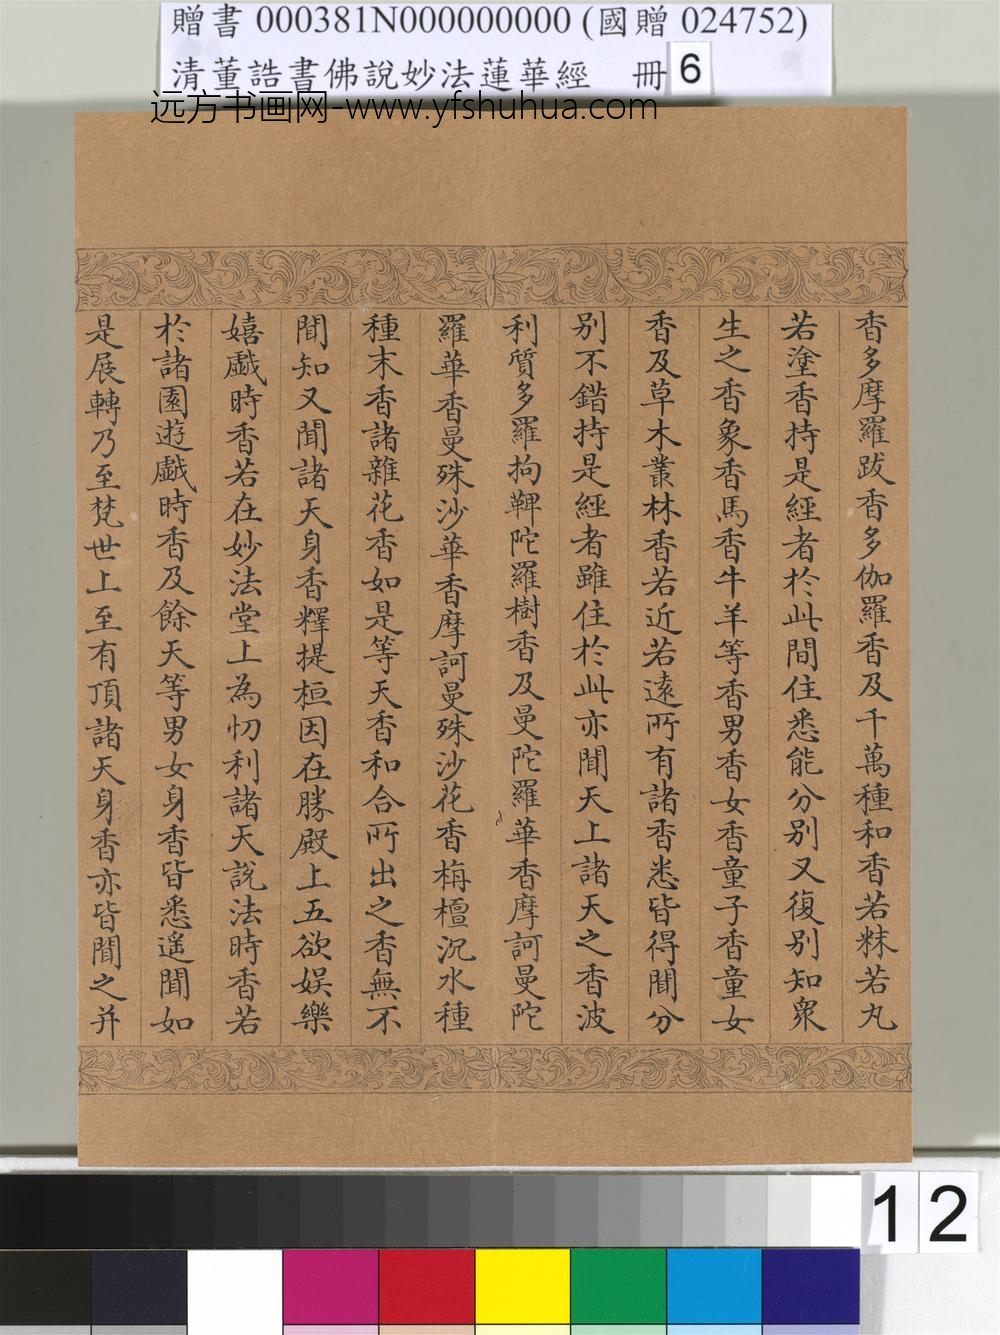 贈書 000381N000000000 (國贈 024752)
清董誥書佛說妙法蓮華經 冊 6
远方书画网-www.yfshuhua.com
香多摩羅跋香多伽羅香及千萬種和香若粖若丸
若塗香持是經者於此間住悉能分別又復別知衆
生之香象香馬香牛羊等香男香女香童子香童女
香及草木叢林香若近若遠所有諸香悉皆得聞分
別不錯持是經者雖住於此亦聞天上諸天之香波
利質多羅拘鞞陀羅樹香及曼陀羅華香摩訶曼陀
羅華香曼殊沙華香摩訶曼殊沙花香栴檀沉水種
種末香諸雜花香如是等天香和合所出之香無不
聞知又聞諸天身香釋提桓因在勝殿上五欲娛樂
嬉戲時香若在妙法堂上為忉利諸天說法時香若
於諸園遊戲時香及餘天等男女身香皆悉遙聞如
是展轉乃至梵世上至有頂諸天身香亦皆聞之并
12